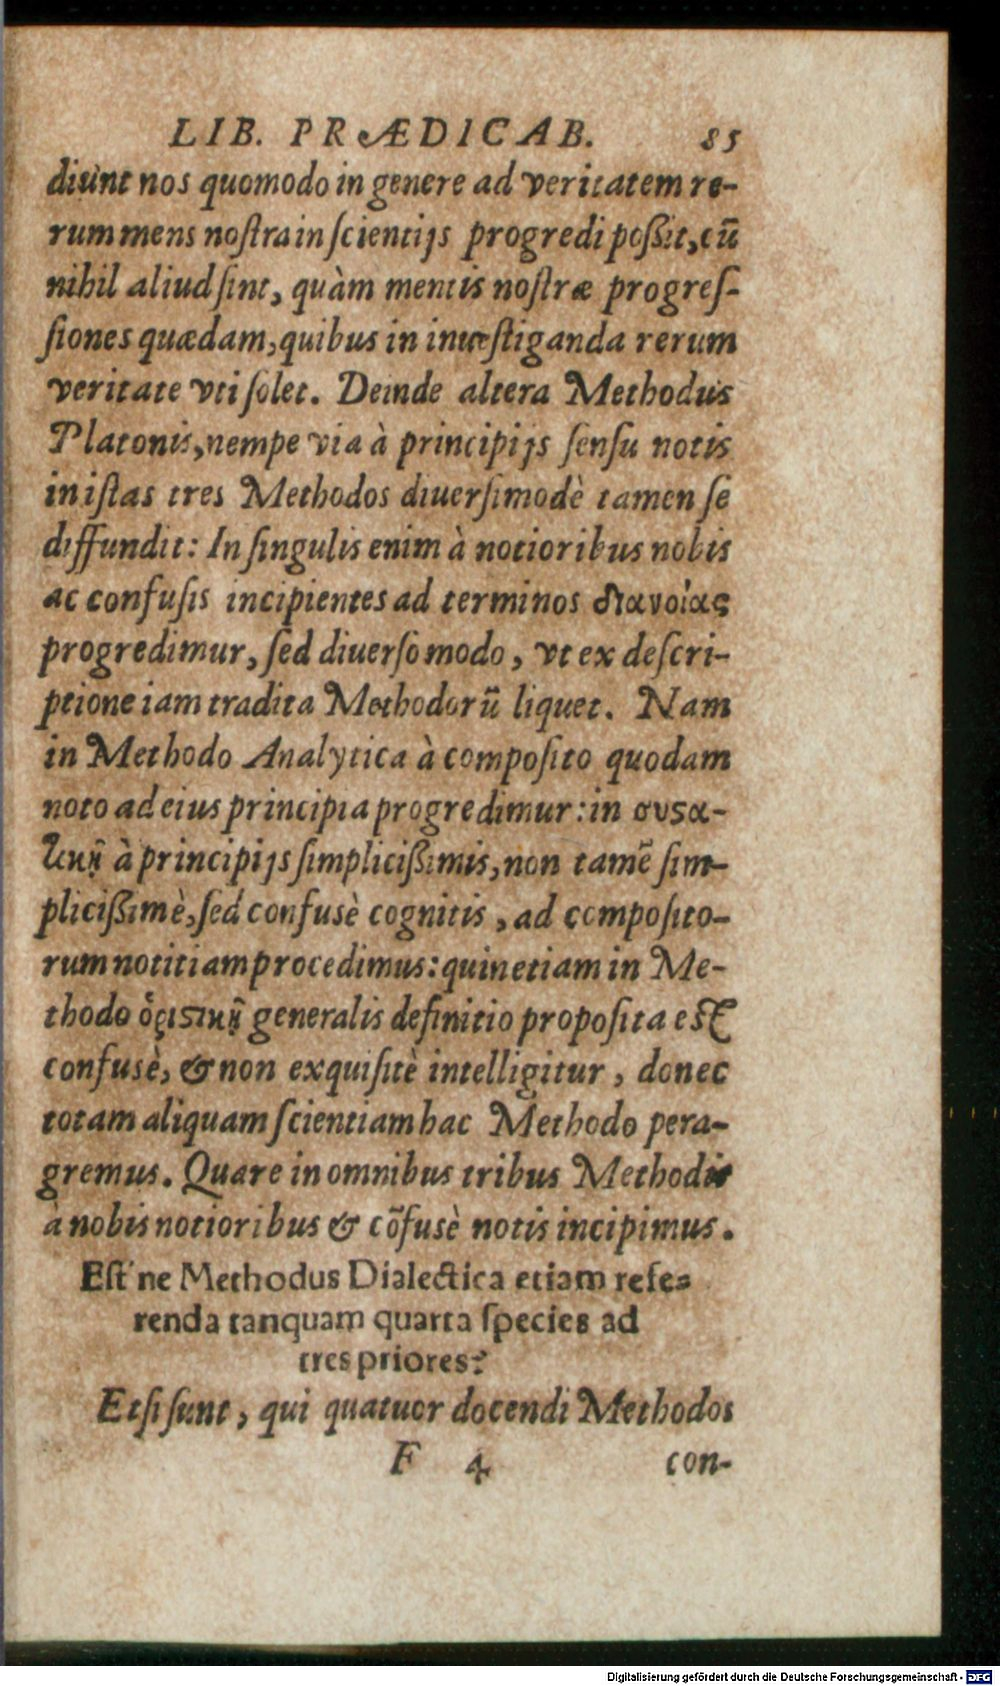 LIB. PRÆDICAB. 85
diunt nos quomodo in genere ad veritatem re-
rum mens noſtra in ſcientijs progredi poßit, cū
nihil aliud ſint, quàm mentis noſtræ progreſ-
ſiones quædam, quibus in inueſtiganda rerum
veritate vti ſolet. Deinde altera Methodus
Platonis, nempe via à principijs ſenſu notis
in iſtas tres Methodos diuerſimodè tamen ſe
diffundit: In ſingulis enim à notioribus nobis
ac confuſis incipientes ad terminos διανοίας
progredimur, ſed diuerſo modo, vt ex deſcri-
ptione iam tradita Methodorū liquet. Nam
in Methodo Analytica à compoſito quodam
noto ad eius principia progredimur: in συϛα-
τικῇ à principijs ſimplicißimis, non tamē ſim-
plicißimè, ſed confusè cognitis, ad compoſito-
rum notitiam procedimus: quinetiam in Me-
thodo ὁριϛικῇ generalis definitio propoſita eſt
confusè, & non exquiſitè intelligitur, donec
totam aliquam ſcientiam hac Methodo pera-
gremus. Quare in omnibus tribus Methodis
à nobis notioribus & cōfusè notis incipimus.
Eſt'ne Methodus Dialectica etiam refe-
renda tanquam quarta ſpecies ad
tres priores?
Etſi ſunt, qui quatuor docendi Methodos
F 4 con-
Digitalisierung gefördert durch die Deutsche Forschungsgemeinschaft - DFG